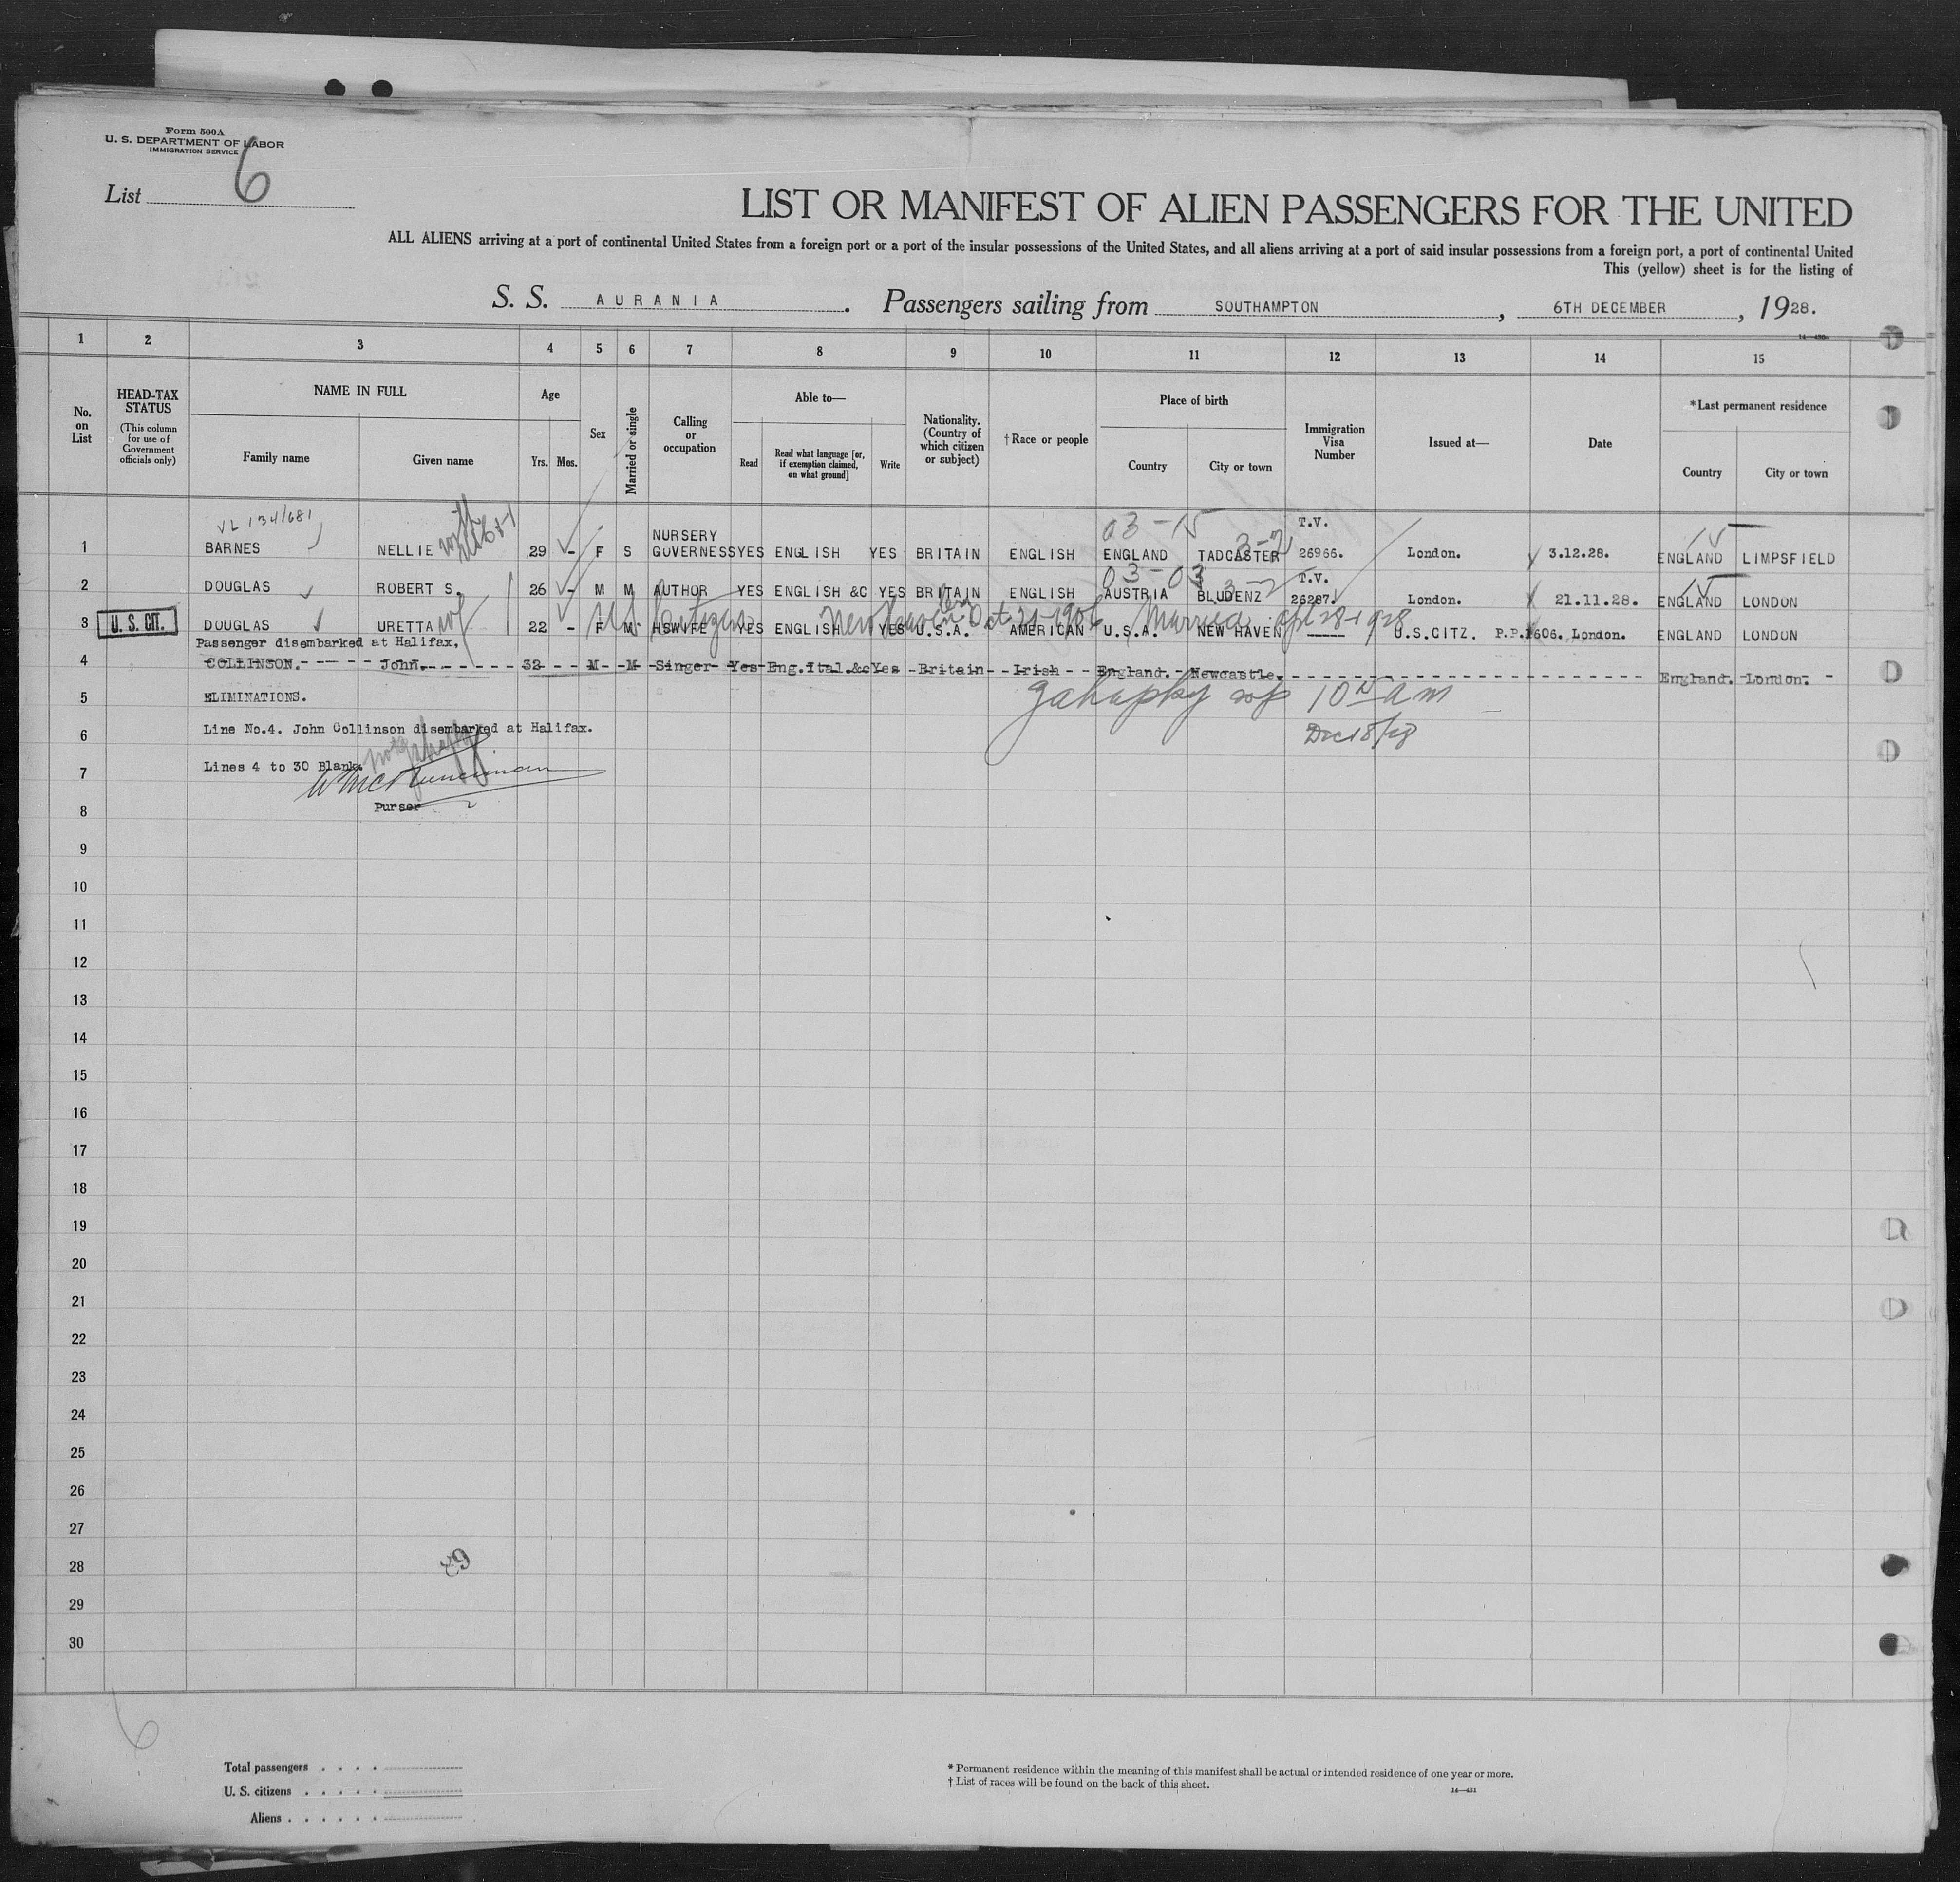 Form 500A
U. S. DEPARTMENT OF LABOR
IMMIGRATION SERVICE
List 6
LIST OR MANIFEST OF ALIEN PASSENGERS FOR THE UNITED
ALL ALIENS arriving at a port of continental United States from a foreign port or a port of the insular possessions of the United States, and all aliens arriving at a port of said insular possessions from a foreign port, a port of continental United
This (yellow) sheet is for the listing of
S. S. AURANIA. Passengers sailing from SOUTHAMPTON, 6TH DECEMBER, 1928.
1 2 3 4 5 6 7 8 9 10 11 12 13 14 15
No. on List
HEAD-TAX STATUS
(This column for use of Government officials only)
NAME IN FULL
Family name Given name
Age
Yrs. Mos.
Sex
Married or single
Calling or occupation
Able to—
Read
Read what language [or, if exemption claimed, on what ground]
Write
Nationality. (Country of which citizen or subject)
†Race or people
Place of birth
Country City or town
Immigration Visa Number
Issued at—
Date
*Last permanent residence
Country City or town
VL 134/681 03-15 T.V.
1 BARNES NELLIE 29 - F S NURSERY GOVERNESS YES ENGLISH YES BRITAIN ENGLISH ENGLAND TADCASTER 26966. London. 3.12.28. ENGLAND LIMPSFIELD
03-03 T.V.
2 DOUGLAS ROBERT S. 26 - M M AUTHOR YES ENGLISH &C YES BRITAIN ENGLISH AUSTRIA BLUDENZ 26287. London. 21.11.28. ENGLAND LONDON
Oct 21-1906 Married Apl 28-1928
3 U. S. CIT. DOUGLAS URETTA 22 - F M HSWIFE YES ENGLISH YES U.S.A. AMERICAN U.S.A. NEW HAVEN ----- U.S.CITZ. P.P.1606. London. ENGLAND LONDON
Passenger disembarked at Halifax.
4 COLLINSON. John. 32 M M Singer Yes Eng.Ital.&c Yes Britain Irish England. Newcastle. England. London.
5 ELIMINATIONS.
10 am
6 Line No.4. John Collinson disembarked at Halifax.
Dec 18/28
7 Lines 4 to 30 Blank.
Purser
8
9
10
11
12
13
14
15
16
17
18
19
20
21
22
23
24
25
26
27
28
29
30
89
6
Total passengers
U. S. citizens
Aliens
* Permanent residence within the meaning of this manifest shall be actual or intended residence of one year or more.
† List of races will be found on the back of this sheet.
14—431